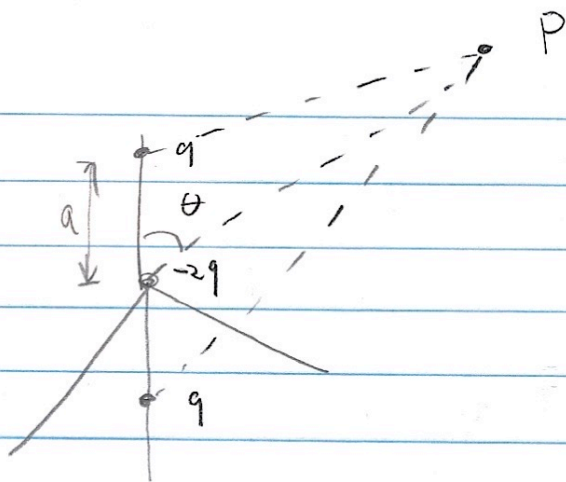 P
q
a
θ
-2q
q